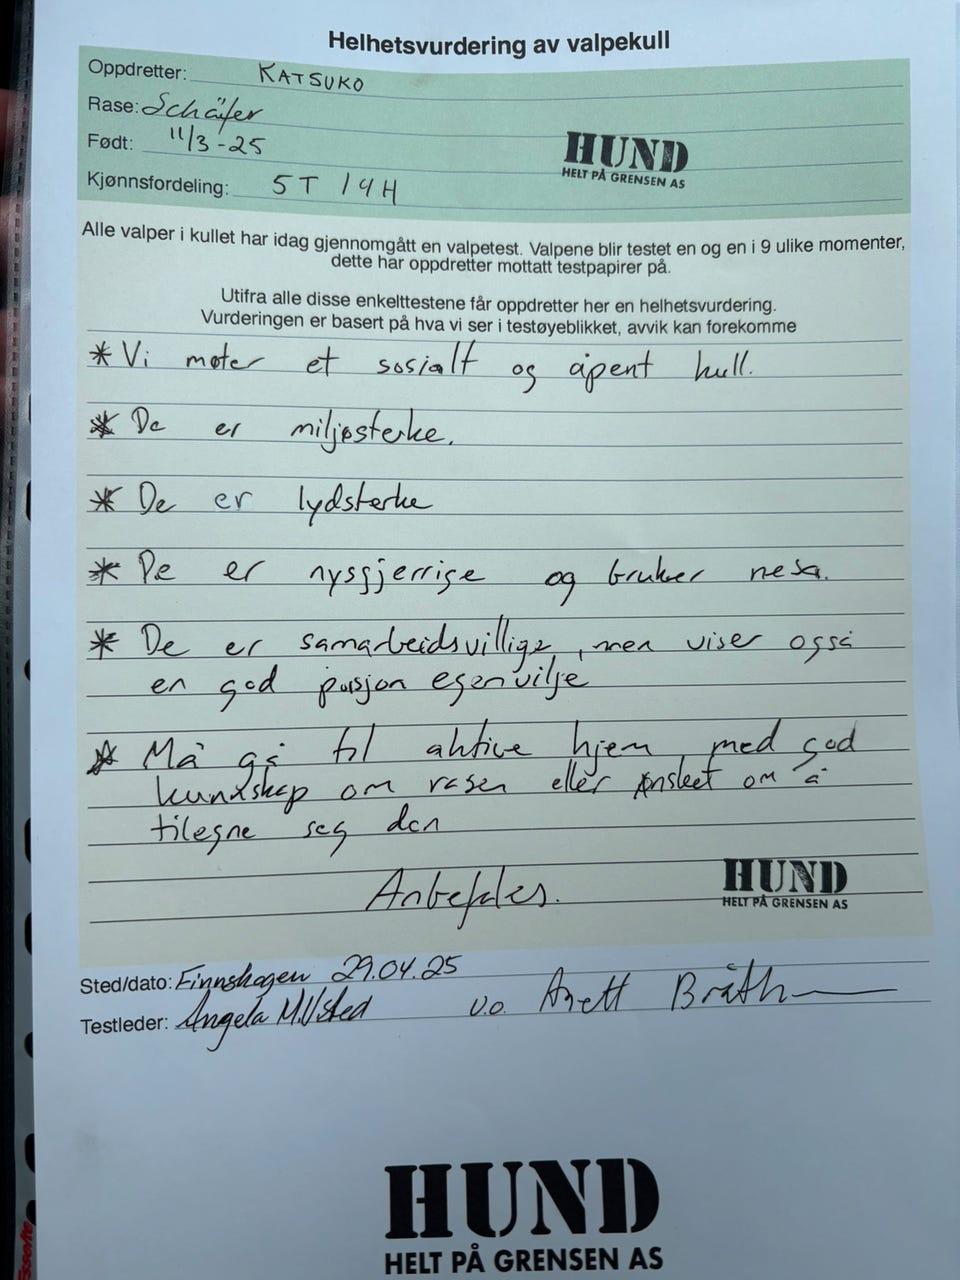 Helhetsvurdering av valpekull
Oppdretter: KATSUKO
Rase: Schäfer
Født: 11/3-25
Kjønnsfordeling: 5 T / 4 H
HUND
HELT PÅ GRENSEN AS
Alle valper i kullet har idag gjennomgått en valpetest. Valpene blir testet en og en i 9 ulike momenter,
dette har oppdretter mottatt testpapirer på.
Utifra alle disse enkelttestene får oppdretter her en helhetsvurdering.
Vurderingen er basert på hva vi ser i testøyeblikket, avvik kan forekomme
* Vi møter et sosialt og åpent kull.
* De er miljøsterke.
* De er lydsterke
* De er nysgjerrige og bruker nesa.
* De er samarbeidsvillige, men viser også
en god porsjon egenvilje
* Må gå til aktive hjem med god
kunnskap om rasen eller ønsket om å
tilegne seg den
Anbefales.
HUND
HELT PÅ GRENSEN AS
Sted/dato: Finnskogen 29.04.25
Testleder: Angela M. Ulsted v.o. Anett Bråth
HUND
HELT PÅ GRENSEN AS